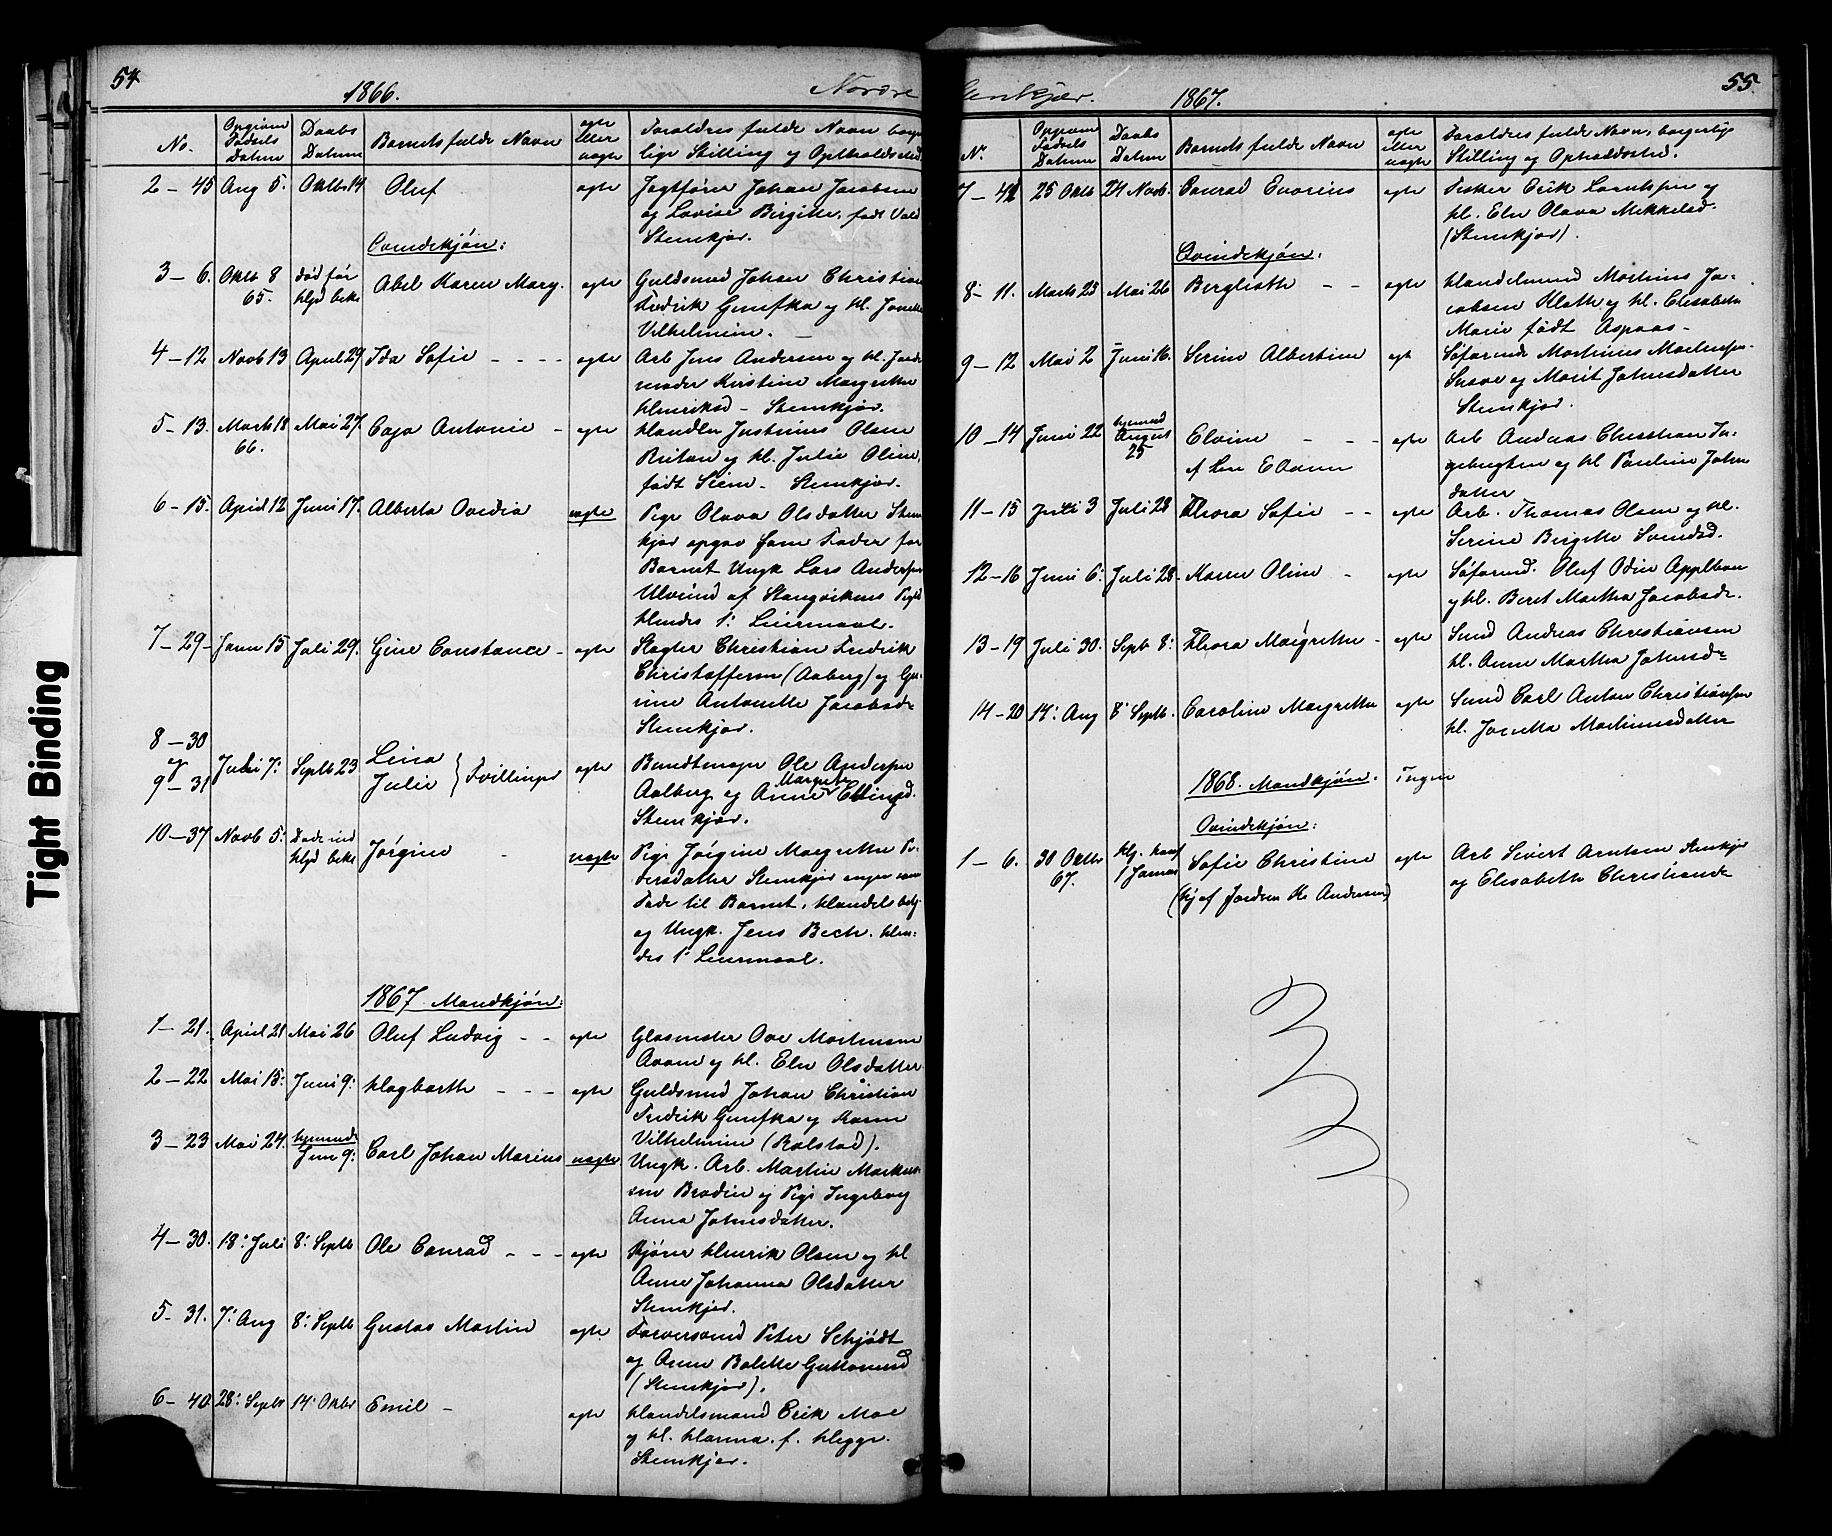 54
1866.
Nordre
No.
Opgiven Fødsels Datum
Daabs Datum
Barnets fulde Navn
ægte eller uægte
Forældres fulde Navn borger-
lige Stilling og Opholdssted
2-45 Aug 5. Oktb 14 Oluf ægte Johan Jacobsen
og Lovise Birgitte, født
Stenkjær.
Qvindekjøn:
3-6. Oktb 8 død før Abel Karen Marg. ægte Guldsmed Johan Christian
65. Fredrik og hl.
Vilhelmine.
4-12 Novb 13 April 29 Ida Sofie - - - - ægte Arb Jens Andersen og hl. Jorde
moder Kirstine Margrethe
Henriksd - Stenkjær.
5-13. Marts 18 Mai 27. Caja Antonie - ægte Handlen Justinus Olsen
66. og hl. Julie Oline,
født - Stenkjær.
6-15. April 12 Juni 17. Alberta Ovedia uægte Pige Olava Olsdatter Sten
kjær opgav som Fader for
Barnet Ungk Lars Andersen
af
Hendes 1: Leiermaal.
7-29 - Janu 15 Juli 29. Gine Constance - ægte Slagter Christian Fredrik
Christoffersen (Aaberg) og Gu-
rine Antonette Jacobsd
Stenkjær.
8-30 Lina
og 7: Septb 23 } Tvillinger ægte Bundtmager Ole Andersen
9-31 Julie
Aalberg og Anne Margrethe Ellingsd.
Stenkjær.
10-37 Novb 5: Jørgine - uægte Pige Jørgine Margrethe Pe-
dersdatter Stenkjær angav som
Fade til Barnet, Handelsbetj
og Ungk. Jens Bech. Hen-
des 1: Leiermaal.
1867 Mandkjøn:
1-21. April 21 Mai 26 Oluf Ludvig - - ægte Glasmester Ove Mortensen
og hl. Elen Olsdatter
2-22 Mai 15: Juni 9: Hagbarth - - - ægte Guldsmed Johan Christian
Fredrik og Karen
Vilhelmine (Rolstad).
3-23 Mai 24. hjemmed Juni 9: Carl Johan Marius uægte Ungk. Arb. Martin
og Pige Ingeborg
Anna Johnesdatter.
4-30. 18: Juli 8: Septb Ole Conrad - - - ægte Henrik Olsen og hl
Anne Johanna Olsdatter
Stenkjær.
5-31. 7: Aug 8: Septb Gustav Martin ægte Farversvend Peter Schjødt
og Anne Bolette Guttormsd
(Stenkjær).
6-40 28: Septbr 14: Oktbr Emil - ægte Handelsmand Erik Moe
og hl. Hanna. f. Hegge.
Stenkjær.
Stenkjær.
1867.
55.
N.
Opgiven Fødsels Datum
Daabs Datum
Barnets fulde Navn
ægte eller uægte
Forældres fulde Navn, borgerlige
Stilling og Opholdssted.
7-41 25 Oktb 24 Novb. Conrad Evorius ægte Fisker Erik Lorentsen og
hl. Elen Olava Mikkelsd.
(Stenkjær).
Qvindekjøn:
8-11. Marts 23 Mai 26 Berglioth - - ægte Handelsmd Martinus Ja-
cobsen og hl. Elisabeth
Marie født Aspaas -
9-12 Mai 2 Juni 16. Serine Albertine ægt Søfarende Martinus Mortensen
og Marit Johnesdatter
Stenkjær.
10-14 Juni 22 hjemmed August 25 Elvine - - - ægte Arb Andreas Christian In-
gebrigtsen og hl Pauline John
datter
11-15 3 Juli 28 Thora Sofie - - ægte Arb. Thomas Olsen og hl.
Serine Birgitte Svendsd.
12-16 Juni 6: Juli 28 - Karen Oline - ægte Søfarend. Oluf Odin Appelbon
og hl. Beret Martha Jacobsdr.
13-19 Juli 30. Septb 8: Thora Margrethe - ægte Smed Andreas Christiansen
hl. Anne Martha Johnsdr
14-20 14: Aug 8: Septb. Caroline Margrethe ægte Smed Carl Anton Christiansen
hl. Jonetta Martinusdatter
1868. Mandkjøn: Ingen
Qvindekjøn:
1-6. 30 Oktbr 67. Sofie Christine ægte Arb Sivert Arntsen Stenkjær
og Elisabeth Christiansd
Tight Binding